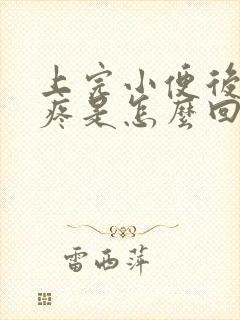 上完小便後
疼是怎麼回
雷西萍